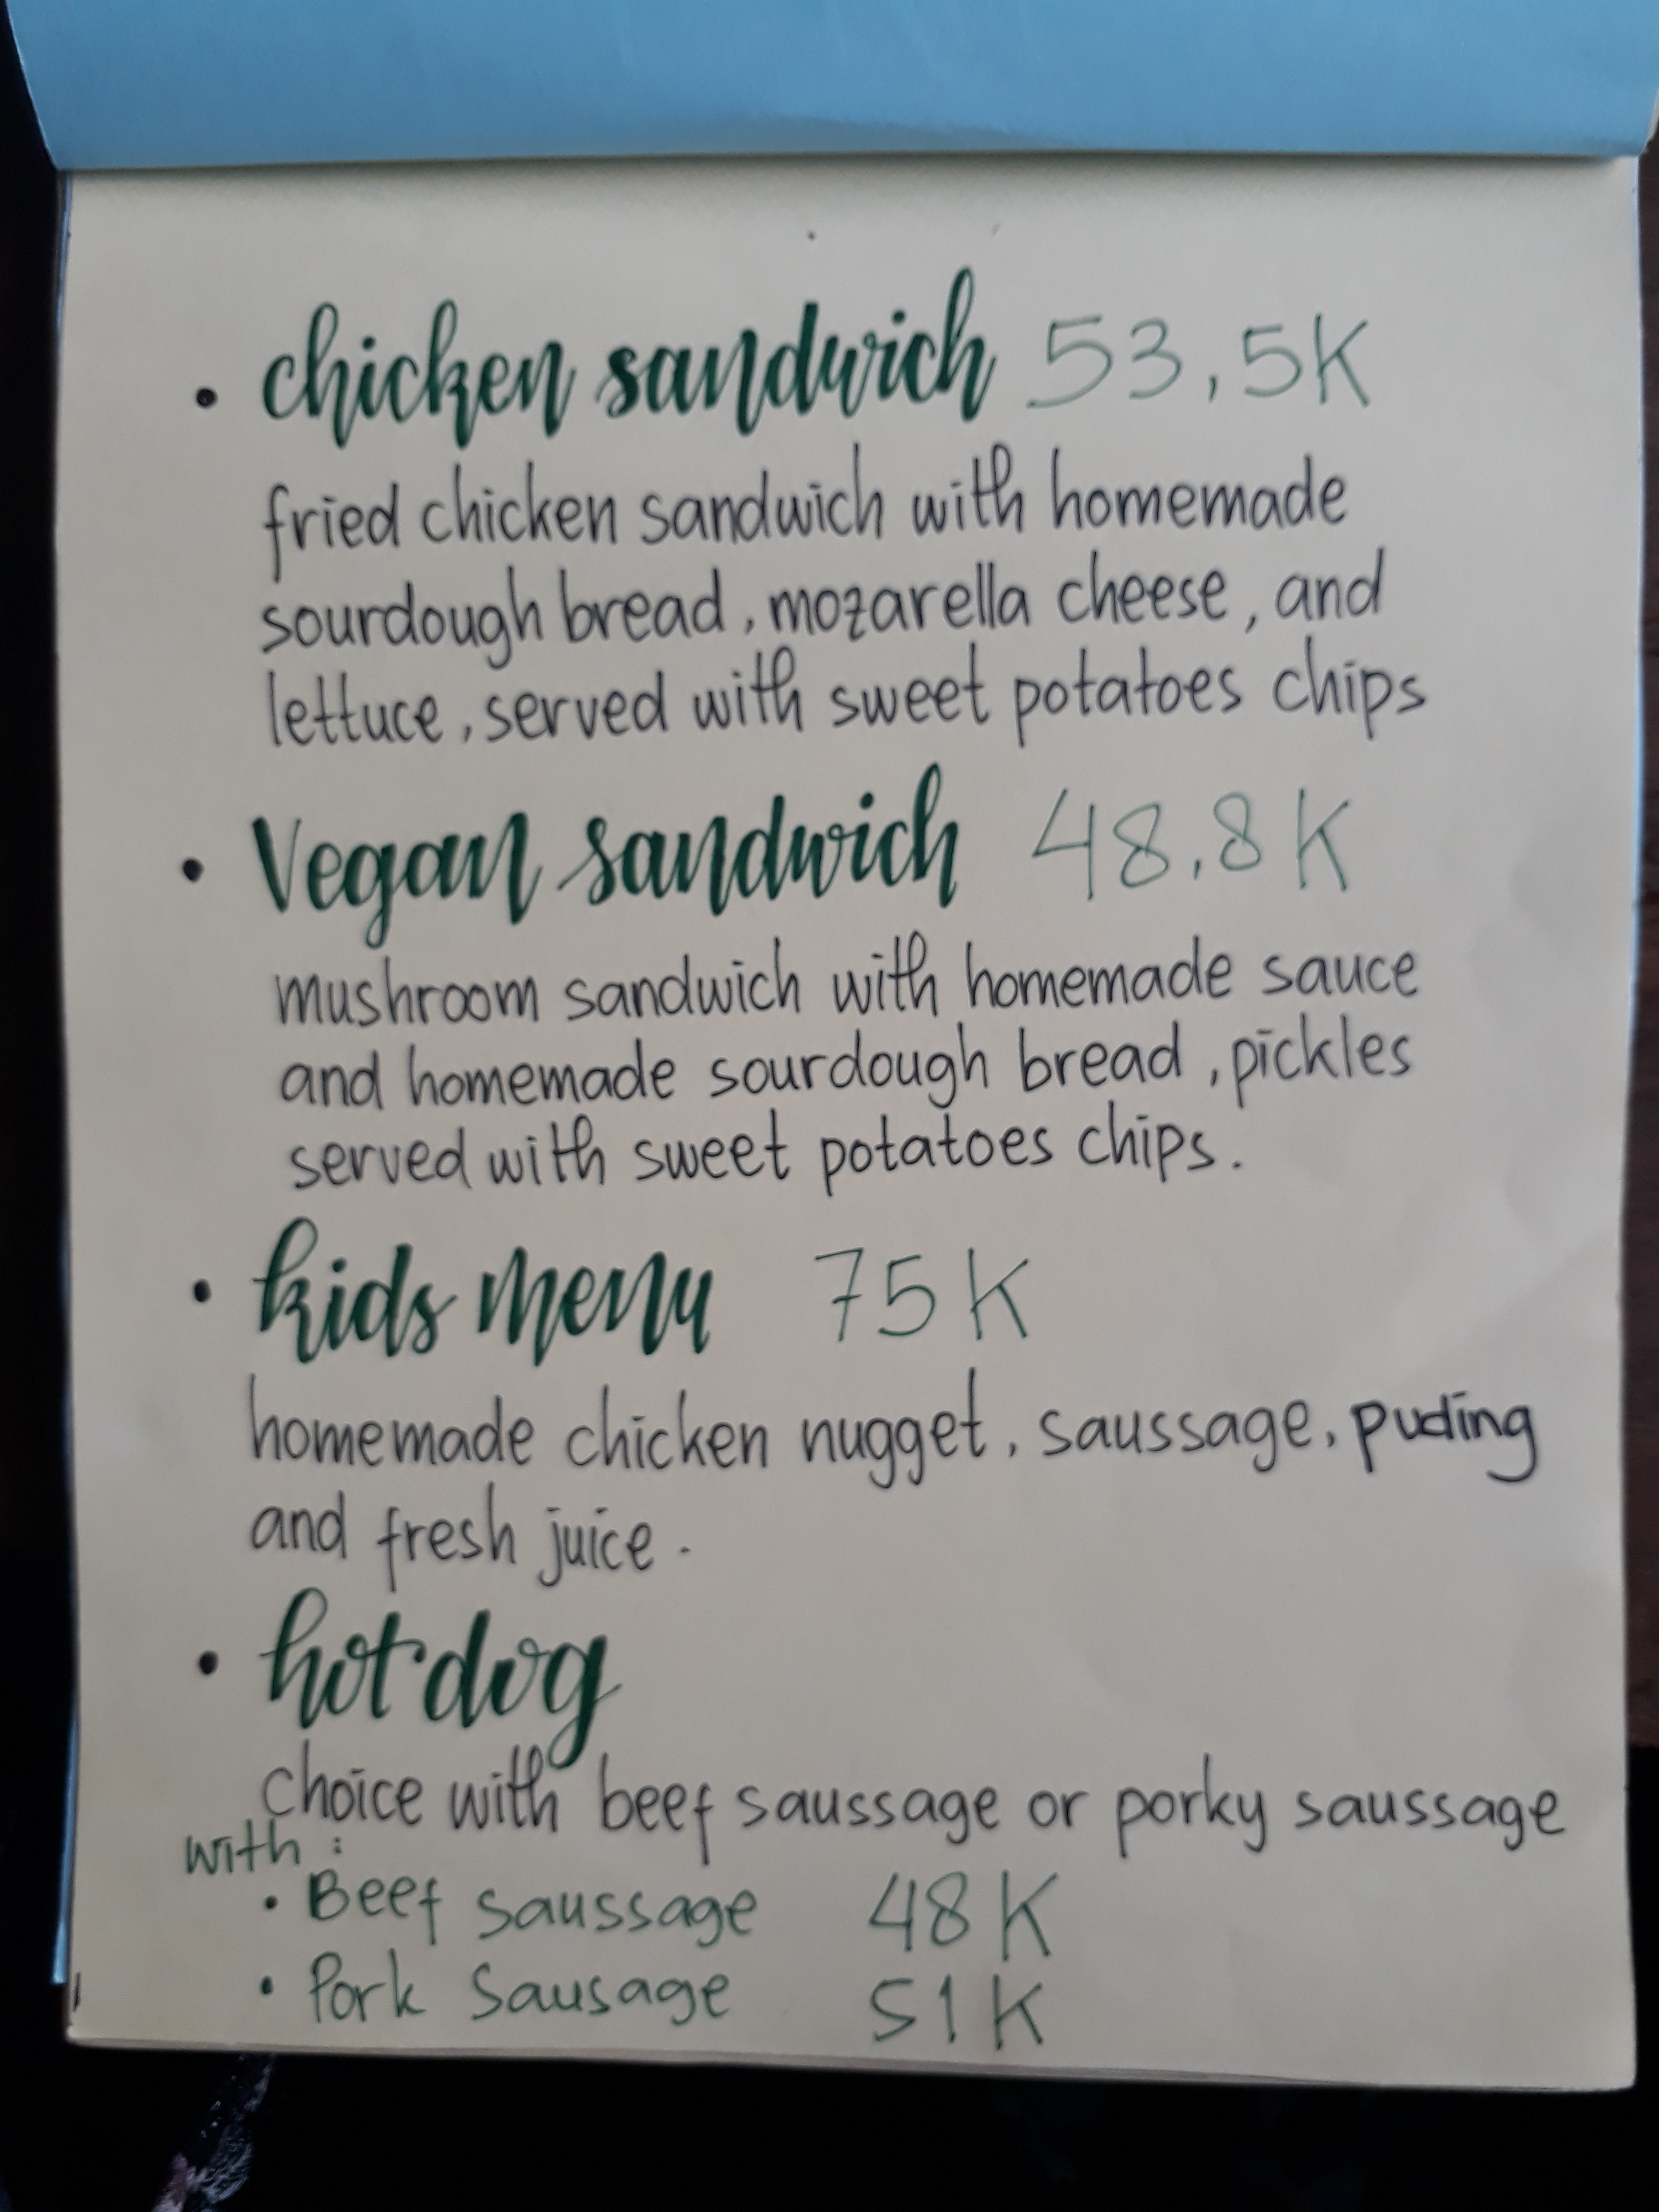 • chicken sandwich 53,5K
fried chicken sandwich with homemade
sourdough bread, mozarella cheese, and
lettuce, served with sweet potatoes chips
• Vegan sandwich 48,8K
mushroom sandwich with homemade sauce
and homemade sourdough bread, pickles
served with sweet potatoes chips.
• kids menu 75K
homemade chicken nugget, saussage, puding
and fresh juice.
• hot dog
choice with beef saussage or porky saussage
with :
• Beef saussage 48K
• Pork Sausage 51K